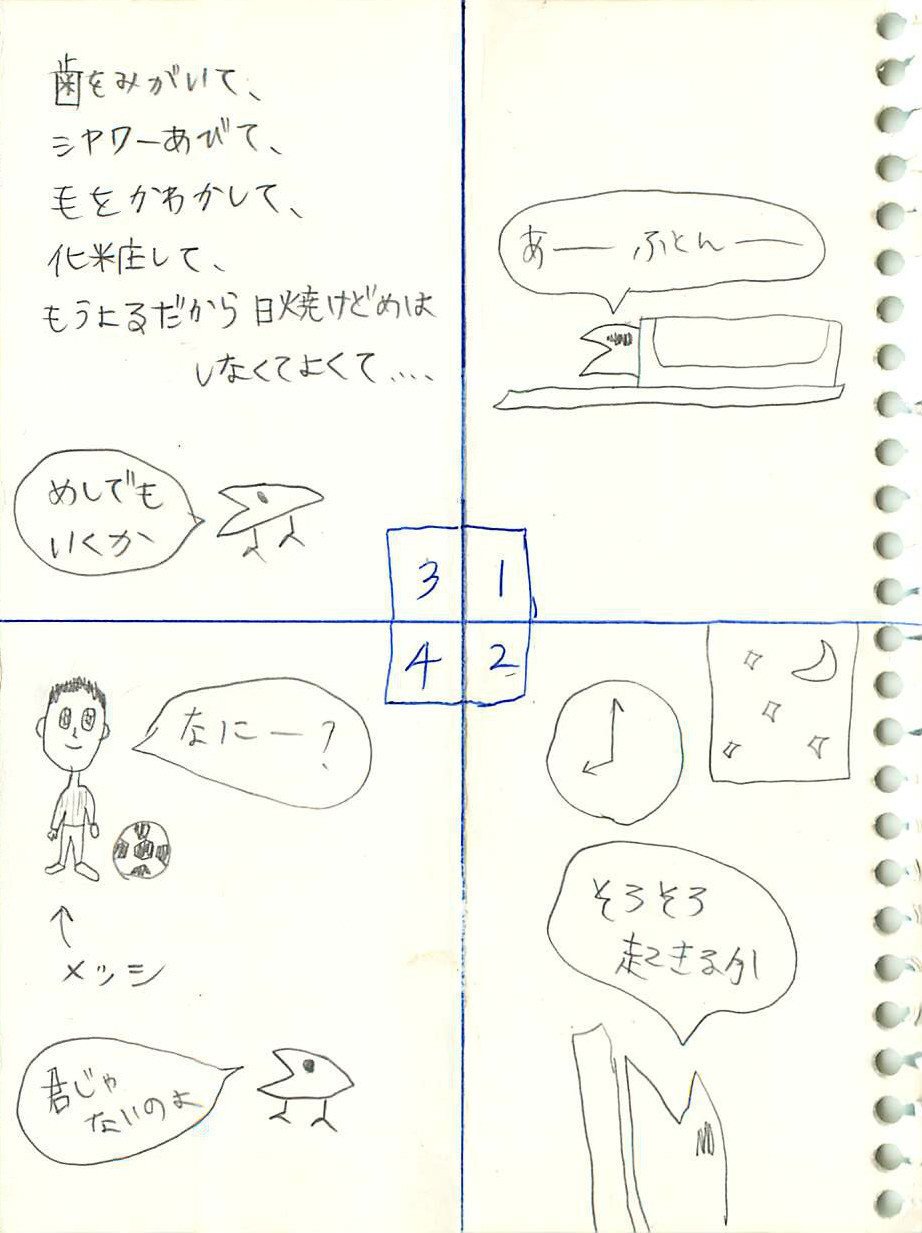 あーーふとんーー
そろそろ
起きるか
歯をみがいて、
シャワーあびて、
毛をかわかして、
化粧して、
もうよるだから日焼けどめは
しなくてよくて....
めしでも
いくか
なにー？
↑
メッシ
君じゃ
ないのよ
3 1
4 2